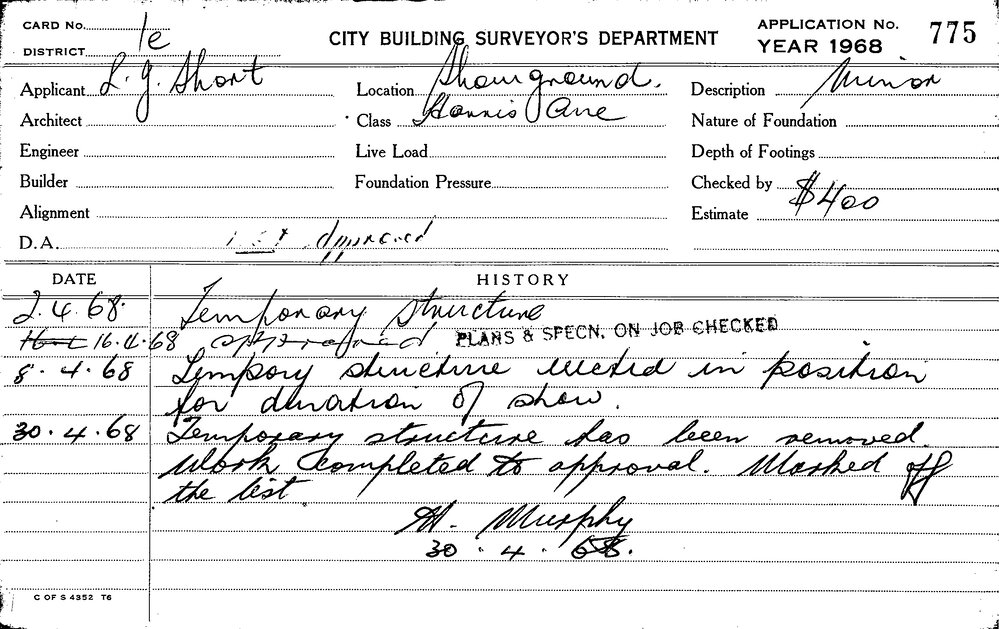 CARD No.
DISTRICT 1e
CITY BUILDING SURVEYOR'S DEPARTMENT
APPLICATION No. 775
YEAR 1968
Applicant L. J. Short
Location Showground.
Description Minor
Architect
Class Harris Ave
Nature of Foundation
Engineer
Live Load
Depth of Footings
Builder
Foundation Pressure
Checked by
Alignment
Estimate $400
D.A. approved
DATE HISTORY
2.4.68. Temporary structure
16.4.68 approved PLANS & SPECN. ON JOB CHECKED
8.4.68 Tempory structure erected in position
for duration of show.
30.4.68 Temporary structure has been removed.
Work completed to approval. Marked off
the list.
H. Murphy
30.4.68.
C OF S 4352 T6